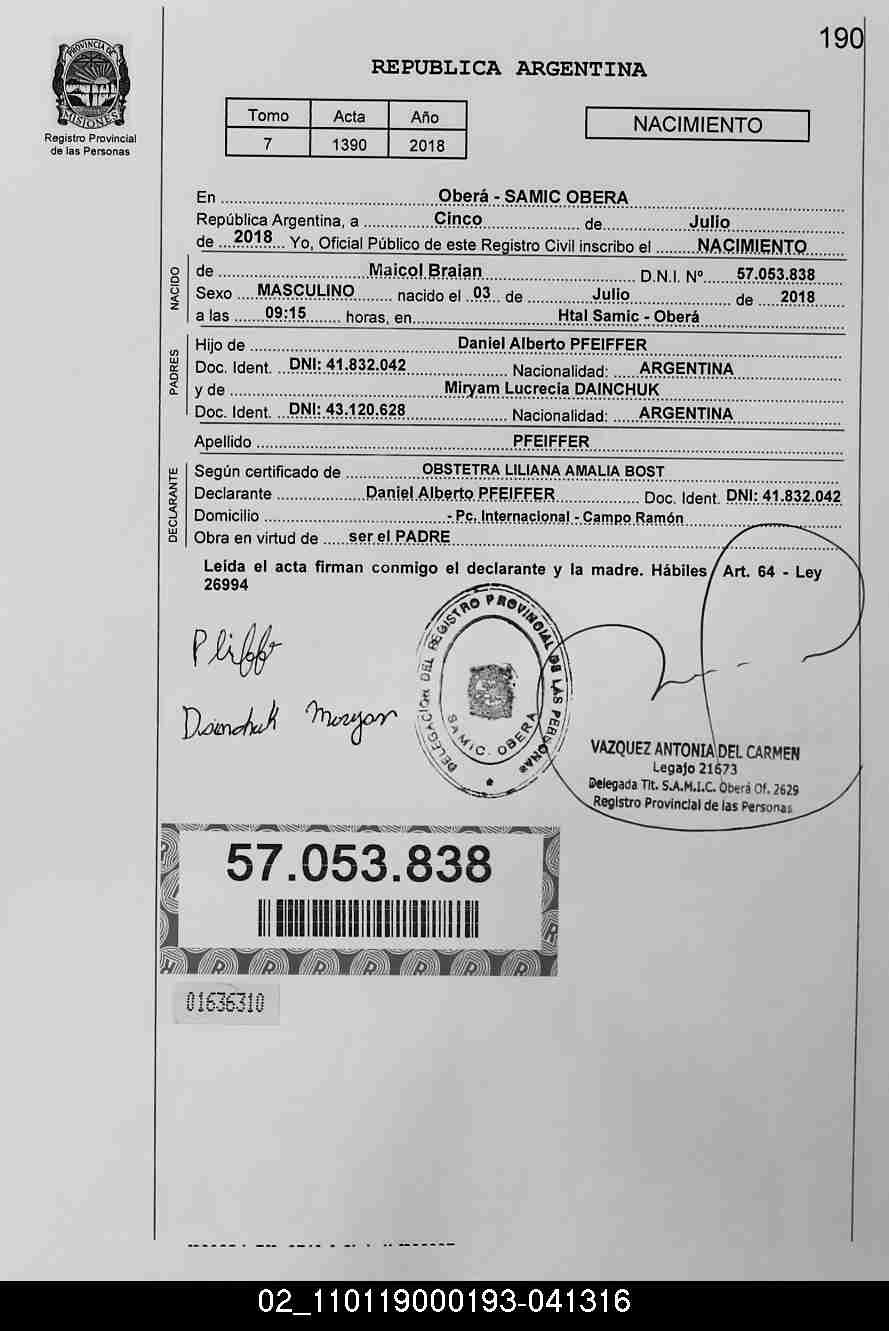 190
PROVINCIA DE
MISIONES
Registro Provincial
de las Personas
REPUBLICA ARGENTINA
Tomo Acta Año
7 1390 2018
NACIMIENTO
En Oberá - SAMIC OBERA
República Argentina, a Cinco de Julio
de 2018 Yo, Oficial Público de este Registro Civil inscribo el NACIMIENTO
NACIDO
de Maicol Braian D.N.I. Nº 57.053.838
Sexo MASCULINO nacido el 03 de Julio de 2018
a las 09:15 horas, en Htal Samic - Oberá
PADRES
Hijo de Daniel Alberto PFEIFFER
Doc. Ident. DNI: 41.832.042 Nacionalidad: ARGENTINA
y de Miryam Lucrecia DAINCHUK
Doc. Ident. DNI: 43.120.628 Nacionalidad: ARGENTINA
Apellido PFEIFFER
DECLARANTE
Según certificado de OBSTETRA LILIANA AMALIA BOST
Declarante Daniel Alberto PFEIFFER Doc. Ident. DNI: 41.832.042
Domicilio - Pc. Internacional - Campo Ramón
Obra en virtud de ser el PADRE
Leida el acta firman conmigo el declarante y la madre. Hábiles Art. 64 - Ley
26994
DELEGACION DEL REGISTRO PROVINCIAL DE LAS PERSONAS
SAMIC. OBERA
VAZQUEZ ANTONIA DEL CARMEN
Legajo 21673
Delegada Tit. S.A.M.I.C. Oberá Of. 2629
Registro Provincial de las Personas
57.053.838
01636310
02_110119000193-041316